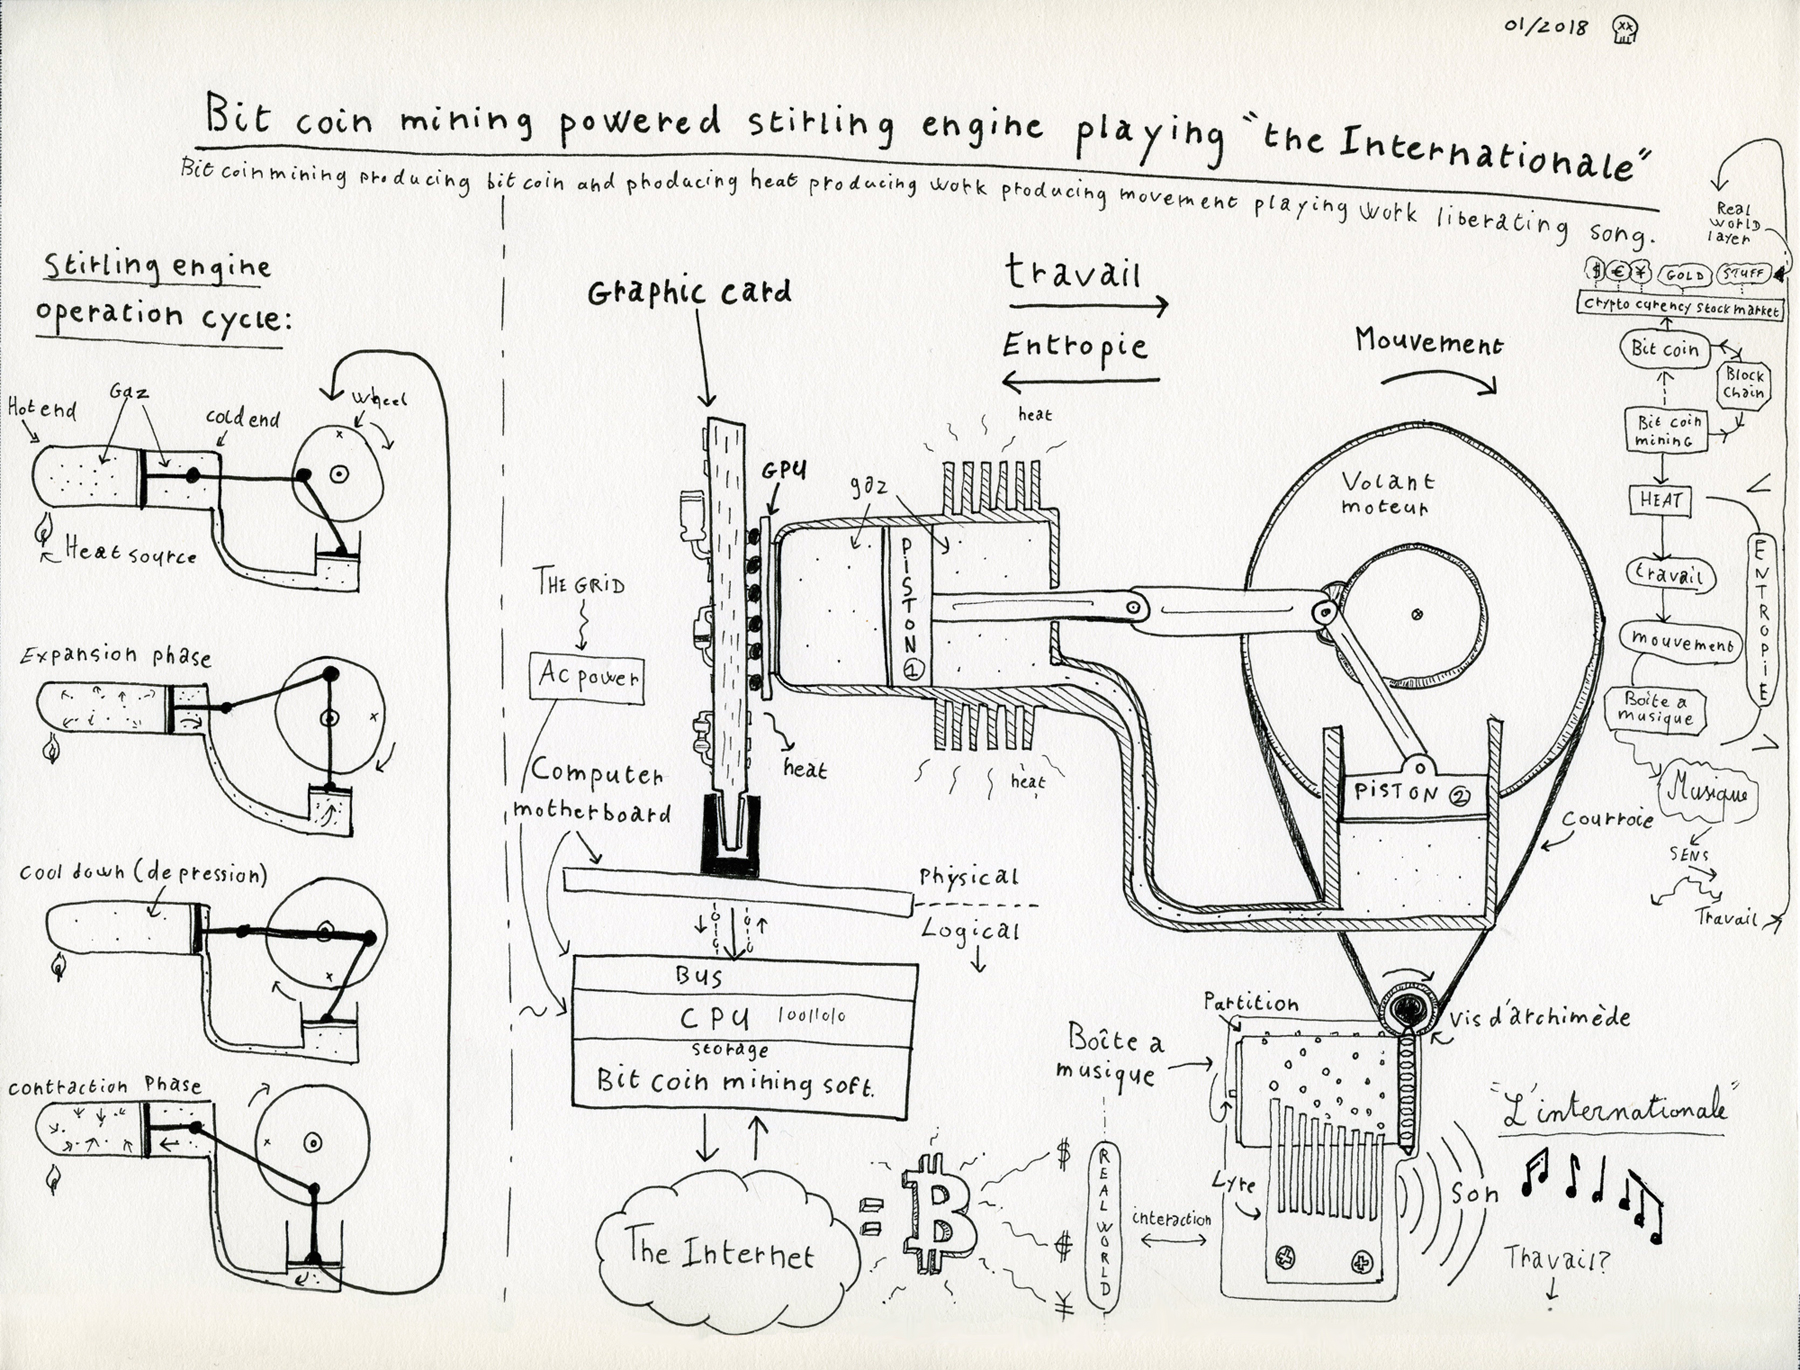 01/2018
Bit coin mining powered stirling engine playing "the Internationale"
Bit coin mining producing bit coin and producing heat producing work producing movement playing work liberating song.
Stirling engine
operation cycle:
Hot end
Gaz
cold end
wheel
Heat source
Expansion phase
cool down (depression)
contraction Phase
Graphic card
travail
Entropie
Mouvement
heat
GPU
gaz
PISTON ①
Volant
moteur
THE GRID
Ac power
heat
heat
Computer
motherboard
PISTON ②
Courroie
Physical
Logical
BUS
CPU 10011010
storage
Bit coin mining soft.
The Internet
= ₿
$
$
¥
REAL WORLD
interaction
Partition
Boîte a
musique
Vis d'archimède
Lyre
Son
"L'internationale"
Travail?
Real
world
layer
$ € ¥ GOLD STUFF
Crypto curency stock market
Bit coin
Block
Chain
Bit coin
mining
HEAT
travail
mouvement
Boîte a
musique
ENTROPIE
Musique
SENS
Travail